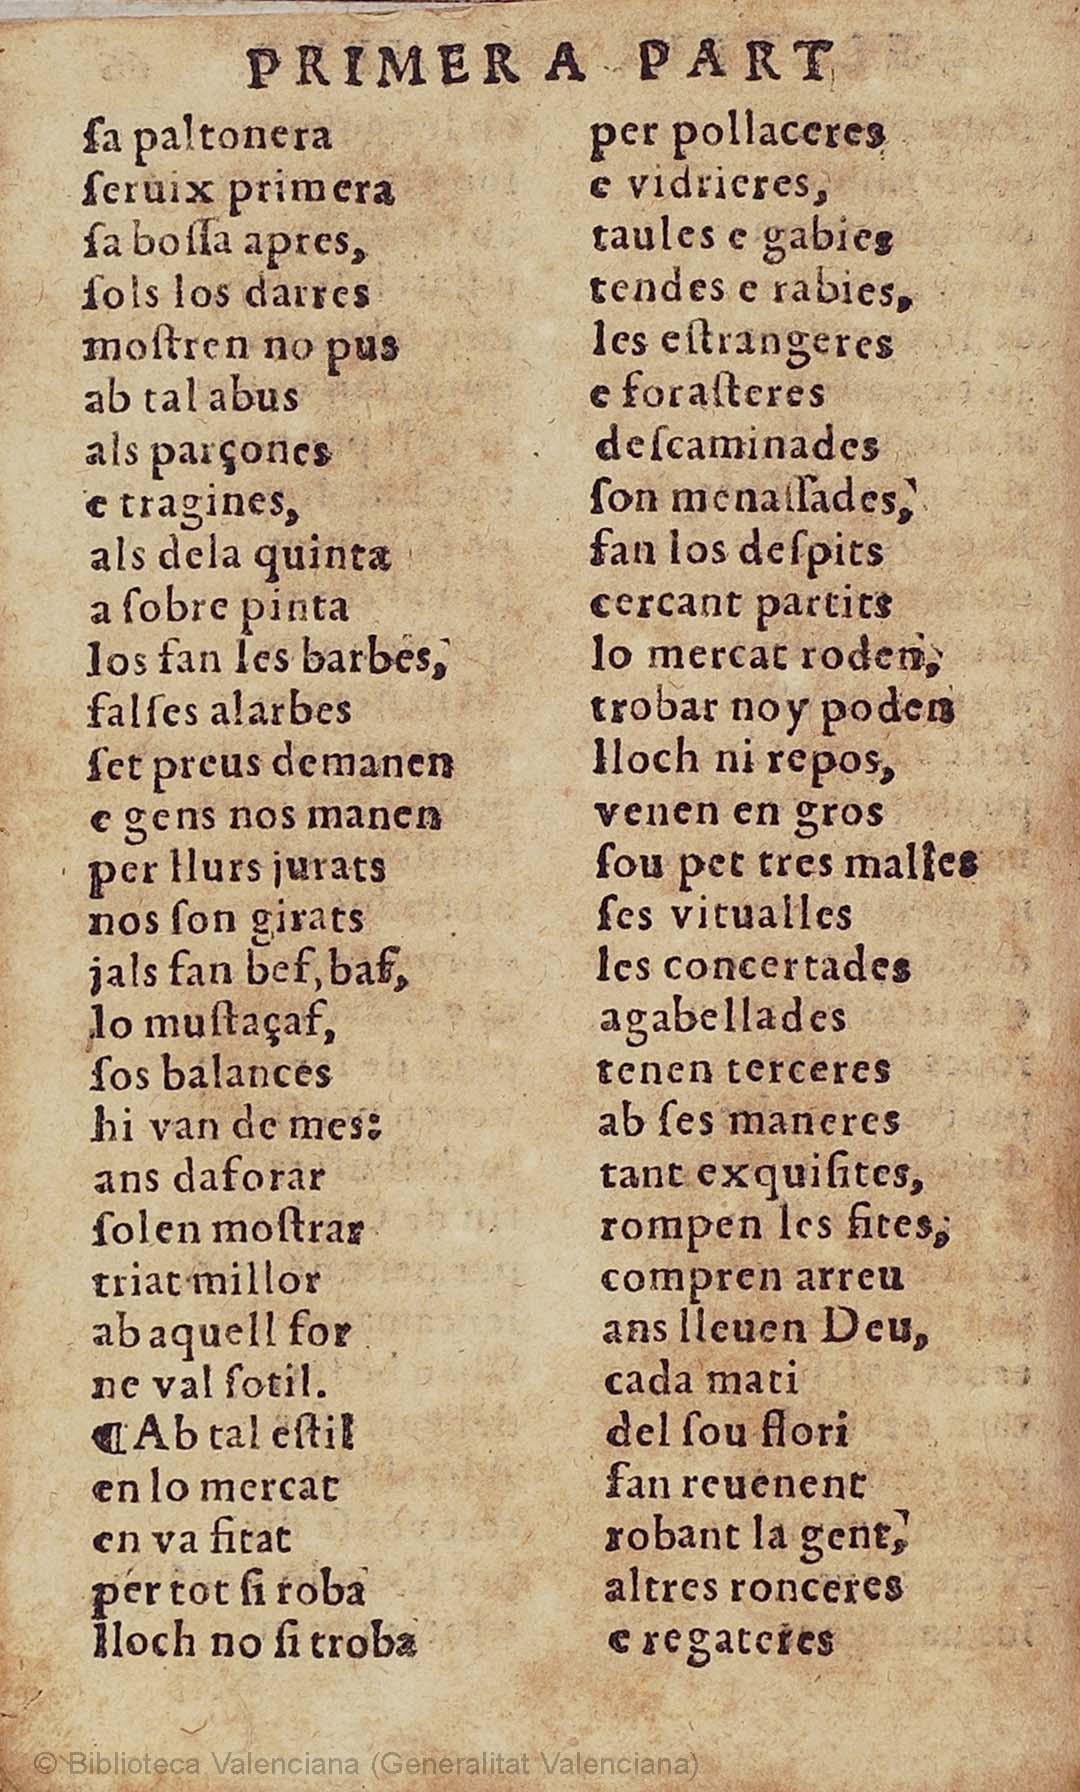 PRIMERA PART
ſa paltonera
ſeruix primera
ſa boſſa apres,
ſols los darres
moſtren no pus
ab tal abus
als parçones
e tragines,
als dela quinta
a ſobre pinta
los fan les barbes,
falſes alarbes
ſet preus demanen
e gens nos manen
per llurs jurats
nos ſon girats
jals fan bef, baf,
lo muſtaçaf,
ſos balances
hi van de mes:
ans daforar
ſolen moſtrar
triat millor
ab aquell for
ne val ſotil.
¶ Ab tal eſtil
en lo mercat
en va fitat
per tot ſi roba
lloch no ſi troba
per pollaceres
e vidrieres,
taules e gabies
tendes e rabies,
les eſtrangeres
e foraſteres
deſcaminades
ſon menaſſades,
fan los deſpits
cercant partits
lo mercat roden,
trobar noy poden
lloch ni repos,
venen en gros
ſou pet tres malles
ſes vitualles
les concertades
agabellades
tenen terceres
ab ſes maneres
tant exquiſites,
rompen les fites,
compren arreu
ans lleuen Deu,
cada mati
del ſou flori
fan reuenent
robant la gent,
altres ronceres
e regateres
© Biblioteca Valenciana (Generalitat Valenciana)